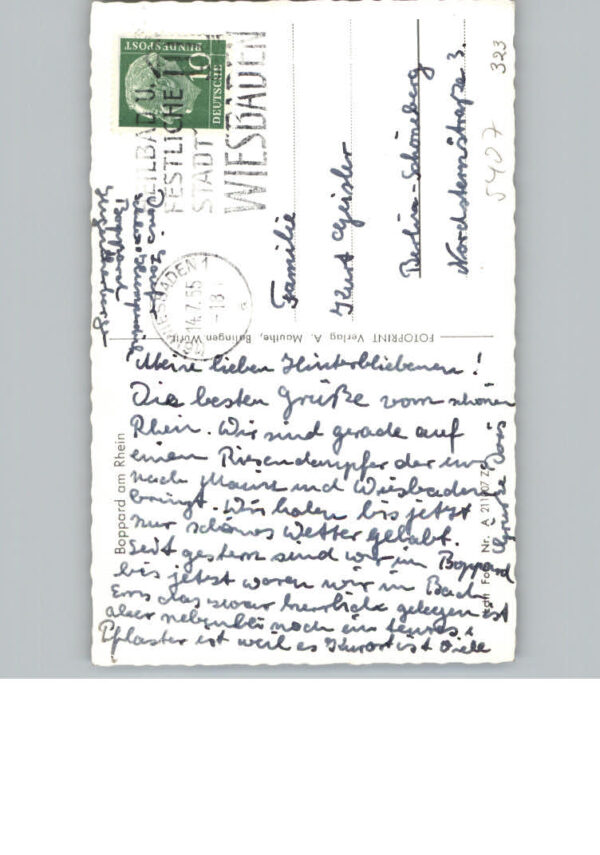 Meine lieben Hinterbliebenen!
Die besten Grüße vom schönen
Rhein. Wir sind gerade auf
einem Riesendampfer der uns
nach Mainz und Wiesbaden
bringt. Wir haben bis jetzt
nur schönes Wetter gehabt.
Seit gestern sind wir in Boppard
bis jetzt waren wir in Bad
Ems das zwar herrlich gelegen ist
aber nebenbei noch ein teures
Pflaster ist weil es Kurort ist Viele
Grüße Doris
Boppard am Rhein
FOTOPRINT Verlag A. Mauthe, Balingen Württ.
Foto Nr. A 211/07
Familie
Kurt Geisler
Berlin-Schöneberg
Nordsternstraße 3.
323
5407
DEUTSCHE
BUNDESPOST
10
HEILBAD U.
FESTLICHE
STADT
WIESBADEN
WIESBADEN 1
14.7.55
-18
Boppard